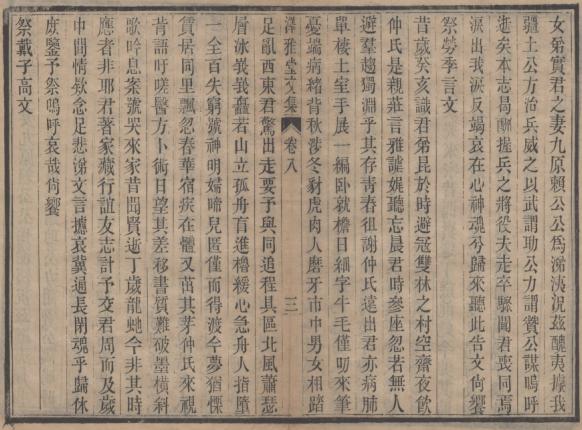 女弟實君之妻九原賴公公爲涕洟況茲醜夷擾我
疆土公方治兵威之以武謂功公力謂贊公謀嗚呼
逝矣本志曷酬握兵之將役夫走卒驟聞君喪同焉
淚出我淚反竭哀在心神魂兮歸來聽此告文尙饗
祭勞季言文
昔歲癸亥識君弟昆於時避寇雙林之村空齋夜飲
仲氏是親莊言雅謔娓聽忘晨君時參座忽若無人
避羣趨獨淵乎其存青春徂謝仲氏遠出君亦病肺
單棲土室手展一編臥就檐日細字牛毛僅叨來筆
憂端病緒背秋涉冬豺虎肉人磨牙市中男女相踏
足亂西東君驚出走要予與同追程具區北風蕭瑟
層冰峩峩矗若山立孤舟首進櫓緩心急舟人指墮
一全百失窮號神明嬬啼兒匿僅而得渡今夢猶慄
賃居同里飄忽春華宿疾在體又茁其芽仲氏來視
背語吁嗟醫方卜術日望其差移書質難破墨橫斜
歌吟息案號哭來家昔聞賢逝丁歲龍虵今非其時
應者非耶君著家藏行誼友志計予交君周而及歲
中間情款念足悲涕文言攄哀冀過長閉魂乎歸休
庶鑒予祭嗚呼哀哉尙饗
祭戴子高文
謫麐堂文集
卷八
三